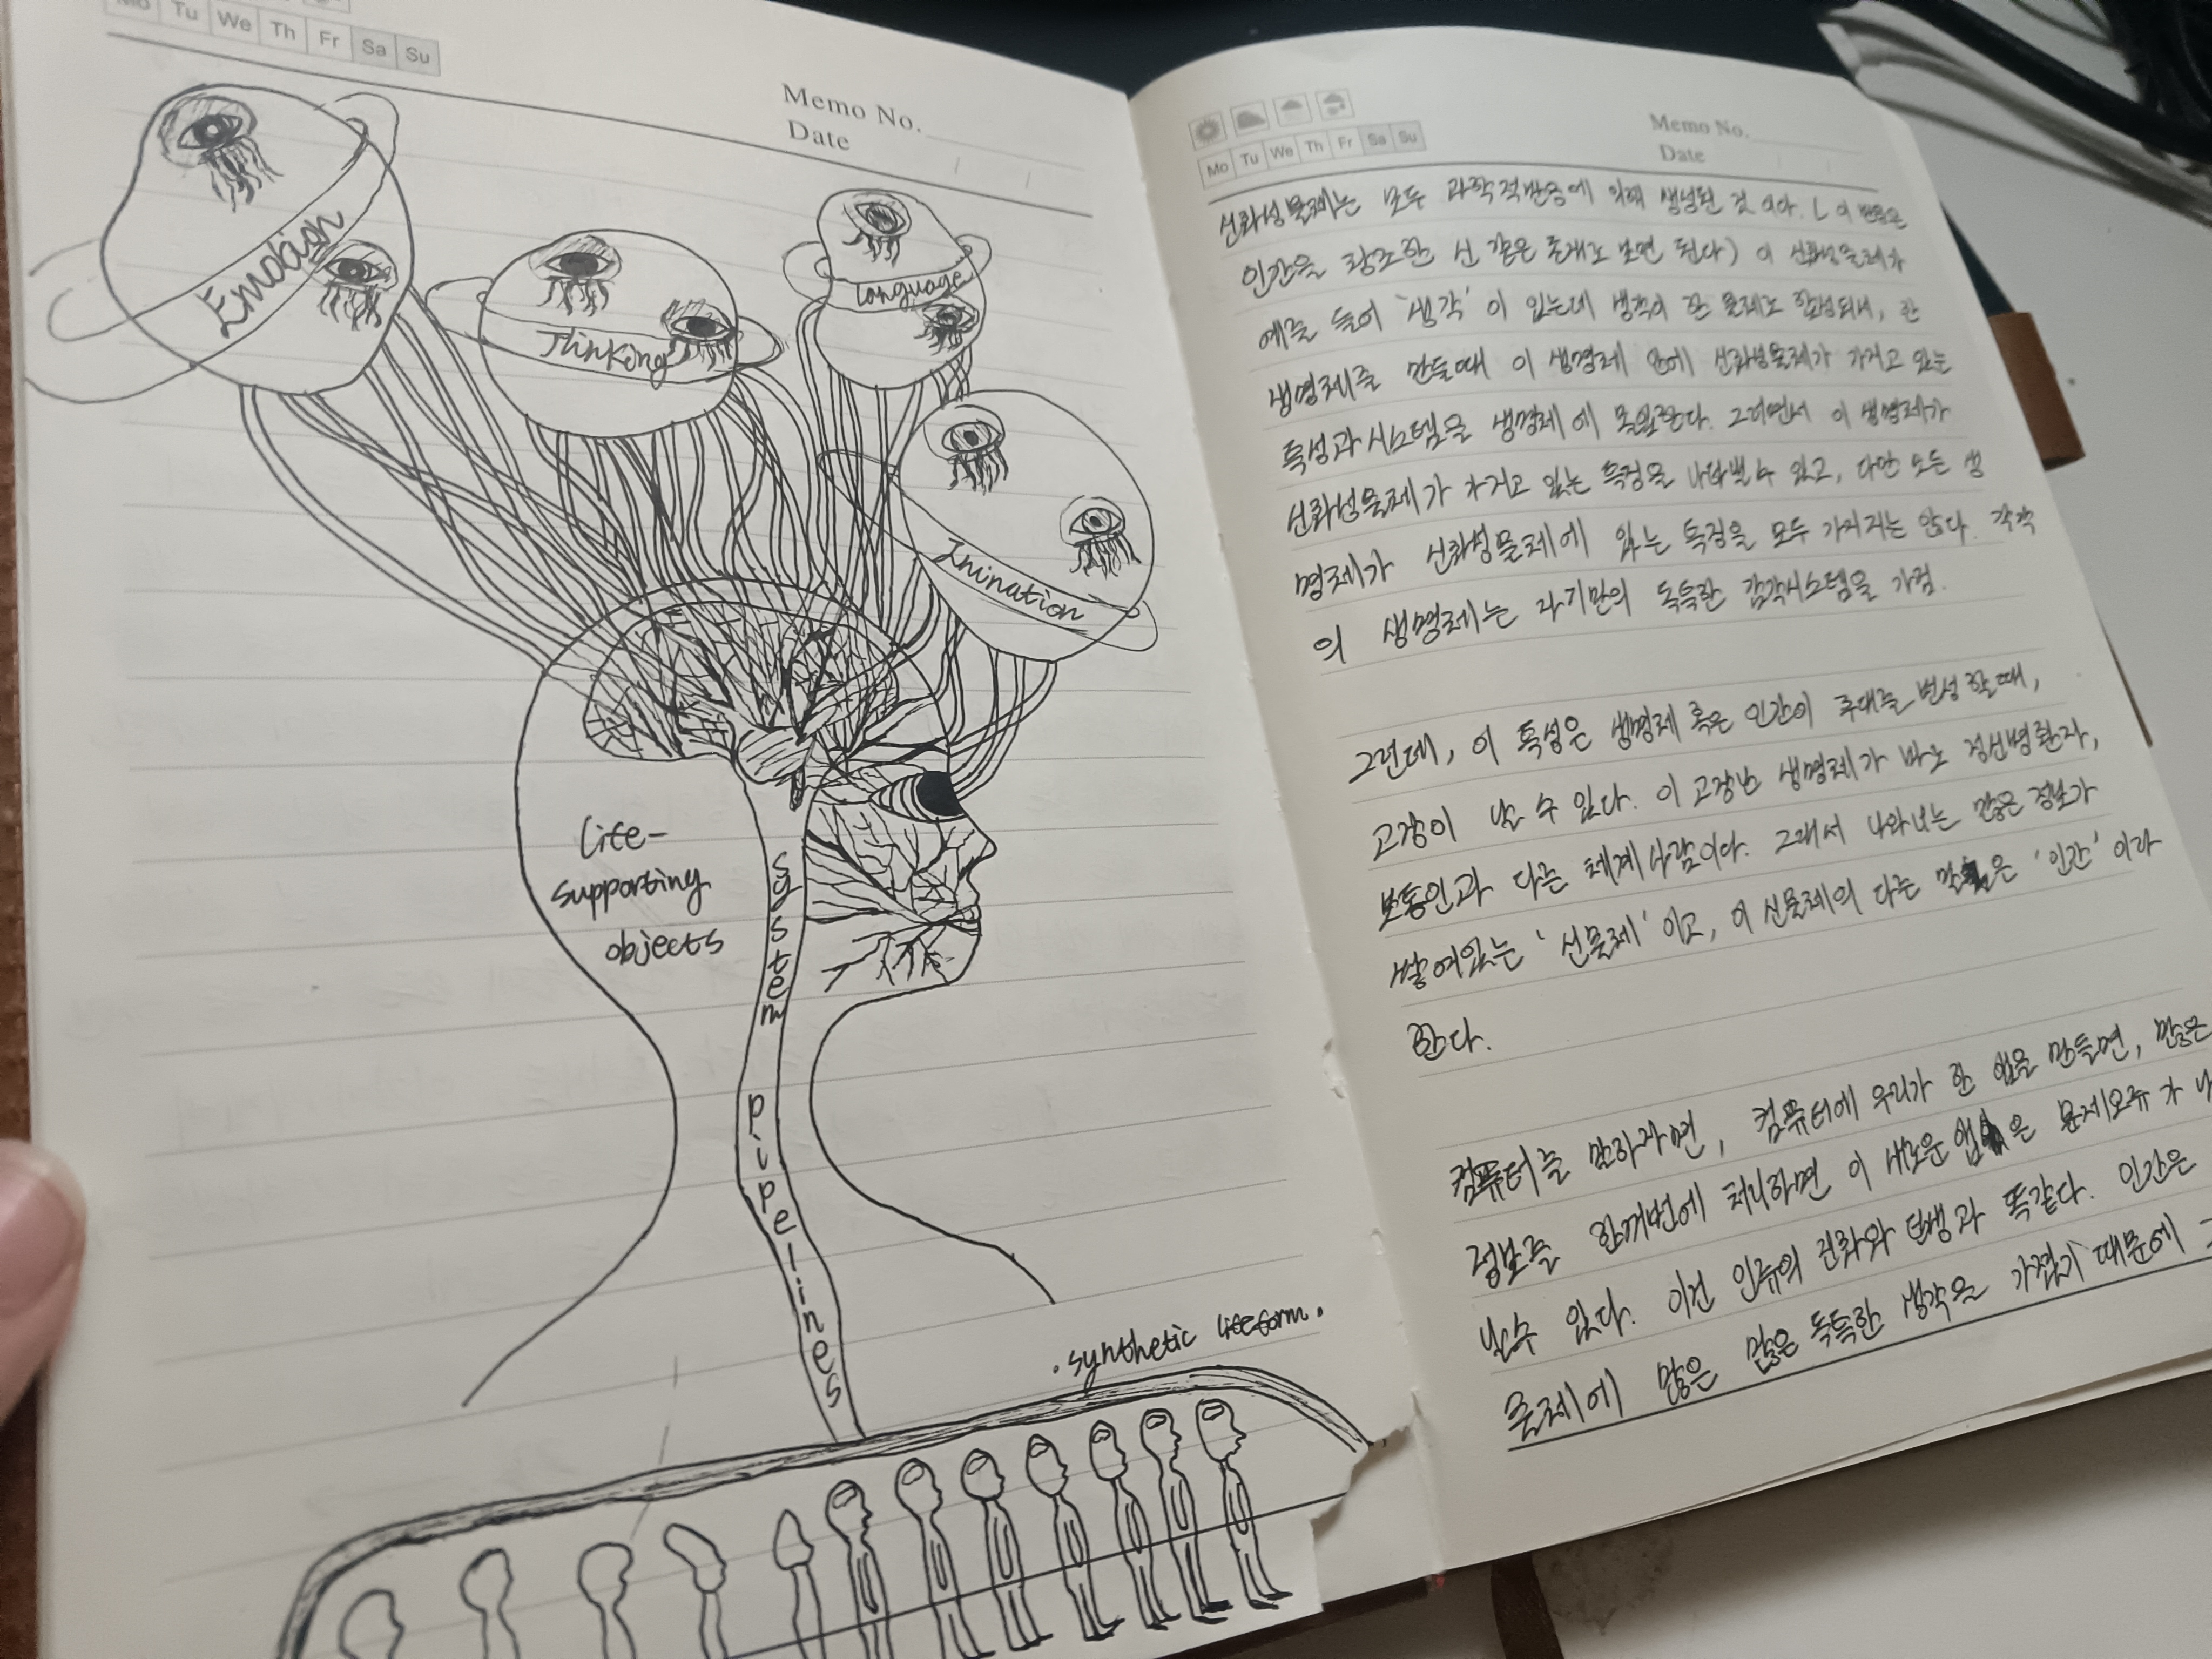 Mo Tu We Th Fr Sa Su
Memo No.
Date
Emotion
Thinking
Language
Inination
Life-
supporting
objects
system pipelines
.synthetic lifeform.
Mo Tu We Th Fr Sa Su
Memo No.
Date
신화성물체는 모두 과학적반응에 의해 생성된 것 이다. 이
인간을 창조한 신 같은 존재로 보면 된다) 이 신화성물체가
예를 들어 '생각' 이 있는데 생각이 한 물체로 합성되서, 한
생명체를 만들때 이 생명체 안에 신화성물체가 가지고 있는
특성과 시스템을 생명체에 몰입한다. 그러면서 이 생명체가
신화성물체가 가지고 있는 특징을 나타낼 수 있고, 다만 모든 생
명체가 신화성물체에 있는 특징을 모두 가지지는 않다. 각각
의 생명체는 자기만의 독특한 감각시스템을 가짐.
그런데, 이 특성은 생명체 혹은 인간이 후대를 번성할때,
고장이 날 수 있다. 이 고장난 생명체가 바로 정신병환자,
보통인과 다른 체계 사람이다. 그래서 나와 너는 많은 정보가
쌓여있는 '신물체' 이고, 이 신물체의 다른 말은 '인간' 이라
한다.
컴퓨터를 말하자면, 컴퓨터에 우리가 한 앱을 만들면, 많은
정보를 한꺼번에 처리하면 이 새로운 앱은 문제오류가
날수 있다. 이건 인류의 진화와 탄생과 똑같다. 인간은
물체에 많은 많은 독특한 생각을 가졌기 때문에